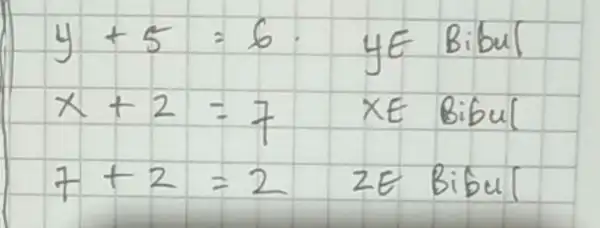 y + 5 = 6. y∈ Bibul
x + 2 = 7 x∈ Bibul
7 + 2 = 2 z∈ Bibul